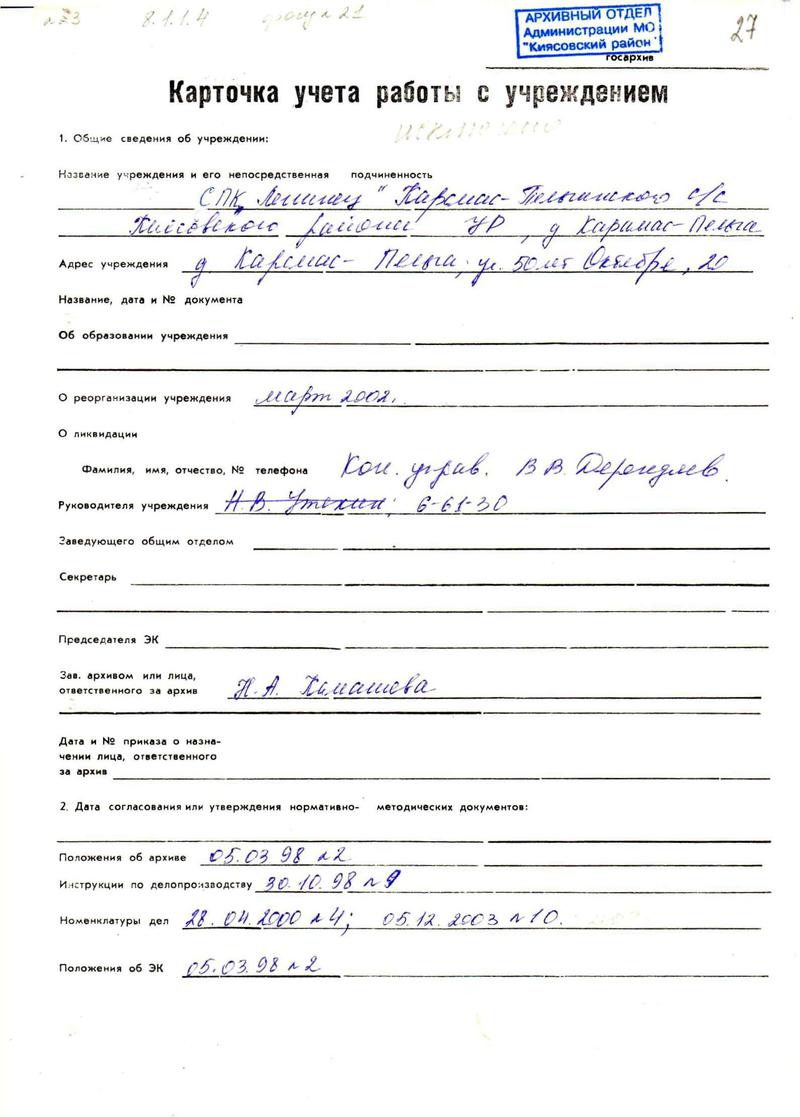 №3 8.1.1.4 фонд 21
АРХИВНЫЙ ОТДЕЛ
Администрации МО
"Киясовский район"
27
госархив
Карточка учета работы с учреждением
исключено
1. Общие сведения об учреждении:
Название учреждения и его непосредственная подчиненность
СПК „Ленинец" Карамас-Пельгинского с/с
Киясовского района УР, д Карамас-Пельга
Адрес учреждения д. Карамас-Пельга, ул. 50 лет Октября, 20
Название, дата и № документа
Об образовании учреждения
О реорганизации учреждения март 2002г.
О ликвидации
Фамилия, имя, отчество, № телефона Кон. управ. В В.
Руководителя учреждения Н.В. Утехин; 6-61-30
Заведующего общим отделом
Секретарь
Председателя ЭК
Зав. архивом или лица,
ответственного за архив Н.А. Камашева
Дата и № приказа о назна-
чении лица, ответственного
за архив
2. Дата согласования или утверждения нормативно- методических документов:
Положения об архиве 05.03 98 №2
Инструкции по делопроизводству 30.10.98 №9
Номенклатуры дел 28.04.2000 №4; 05.12.2003 №10.
Положения об ЭК 05.03.98 №2